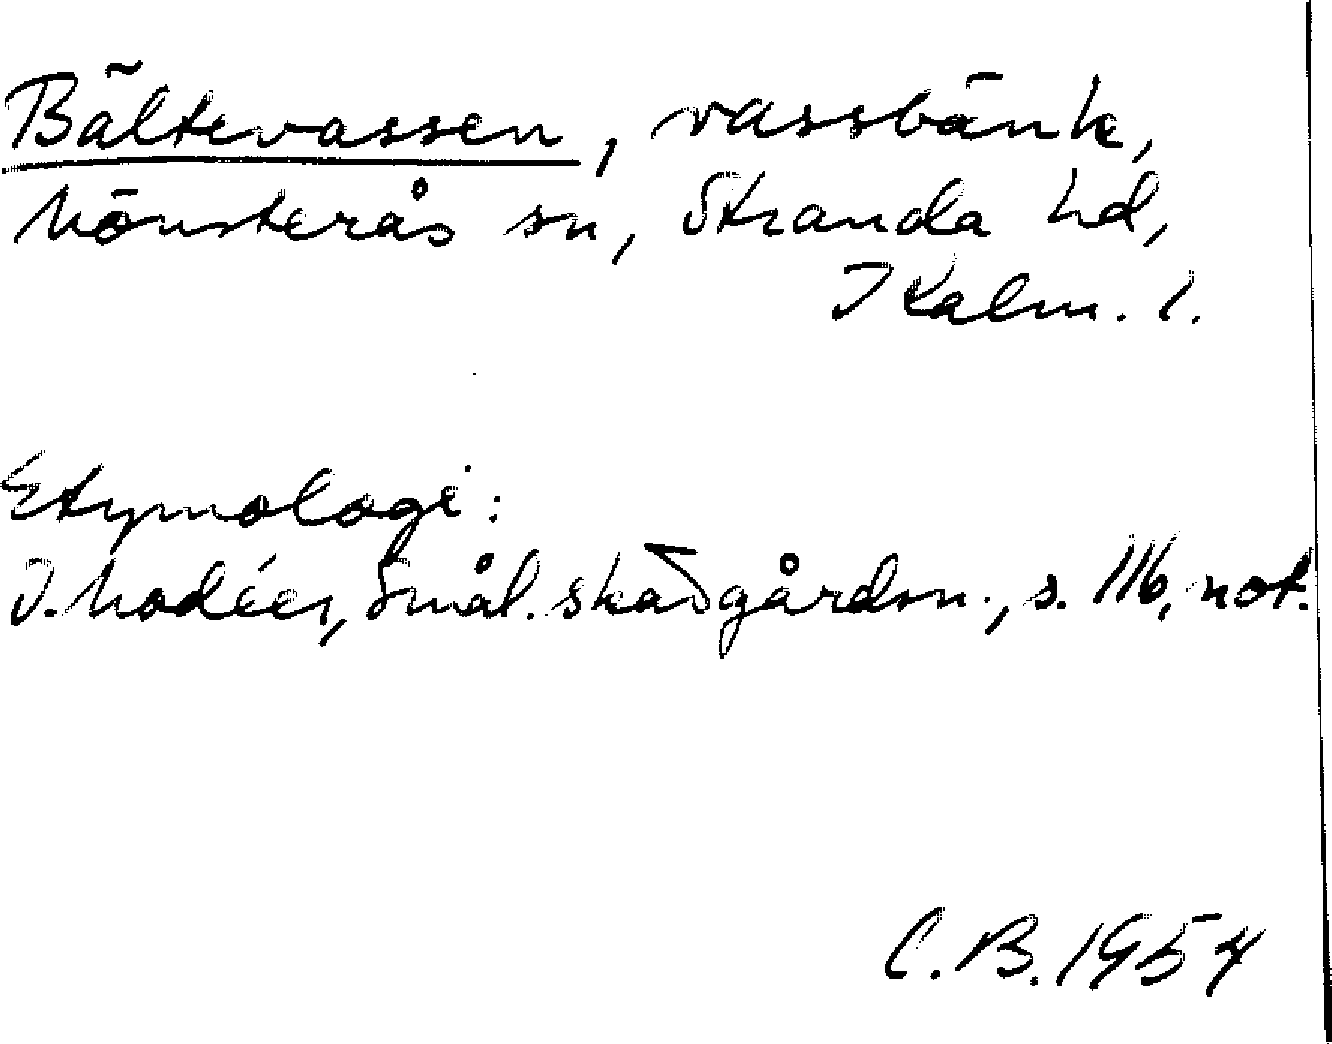 Bältevassen, vassbänk,
Mönsterås sn, Stranda hd,
I Kalm. l.
Etymologi:
I. Modéer, Smål. skärgårdsn., s. 116, not.
C. B. 1954